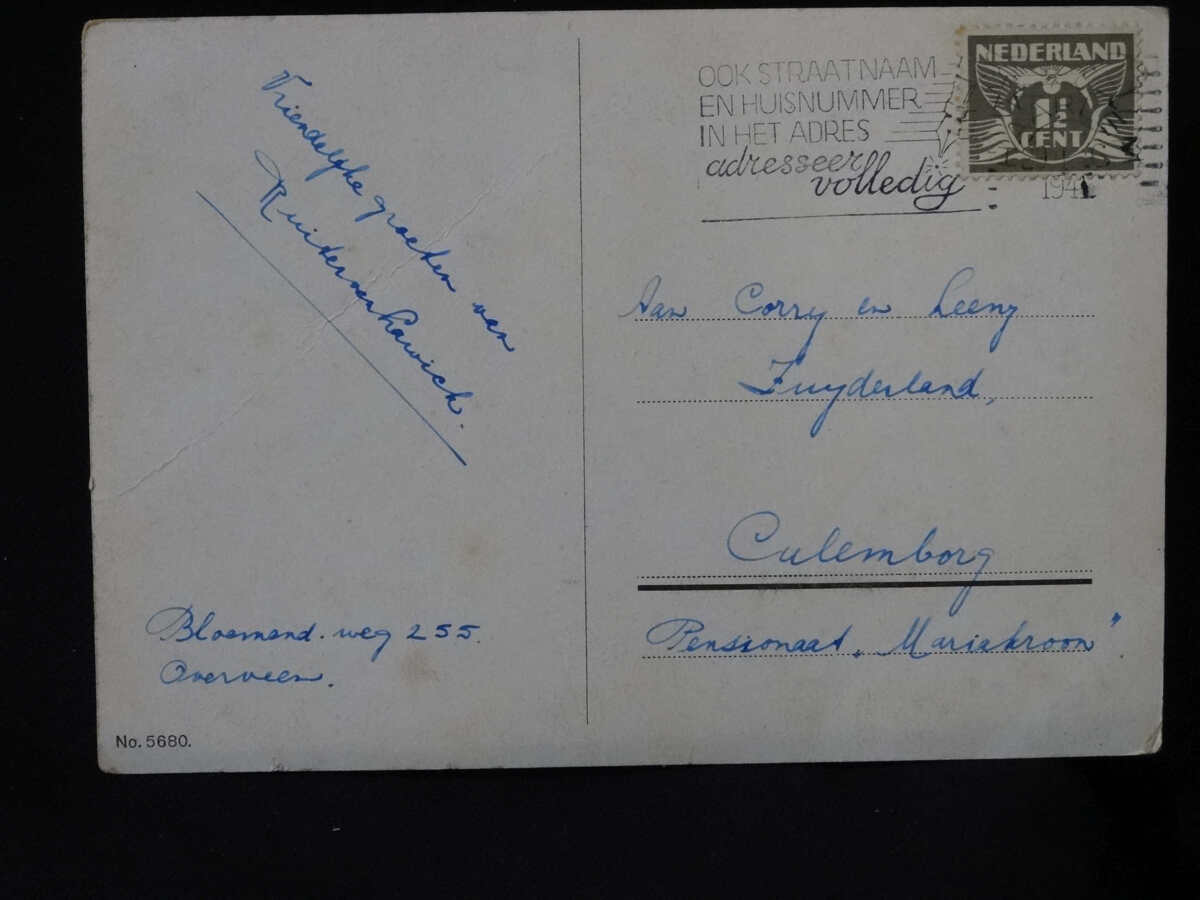 Vriendelyke groeten van
Bloemend. weg 255.
Overveen.
No. 5680.
OOK STRAATNAAM
EN HUISNUMMER
IN HET ADRES
adresseer
volledig
NEDERLAND
1½
CENT
1941
Aan Corry en Leeny
Zuyderland,
Culemborg
Pensionaat „Mariakroon"